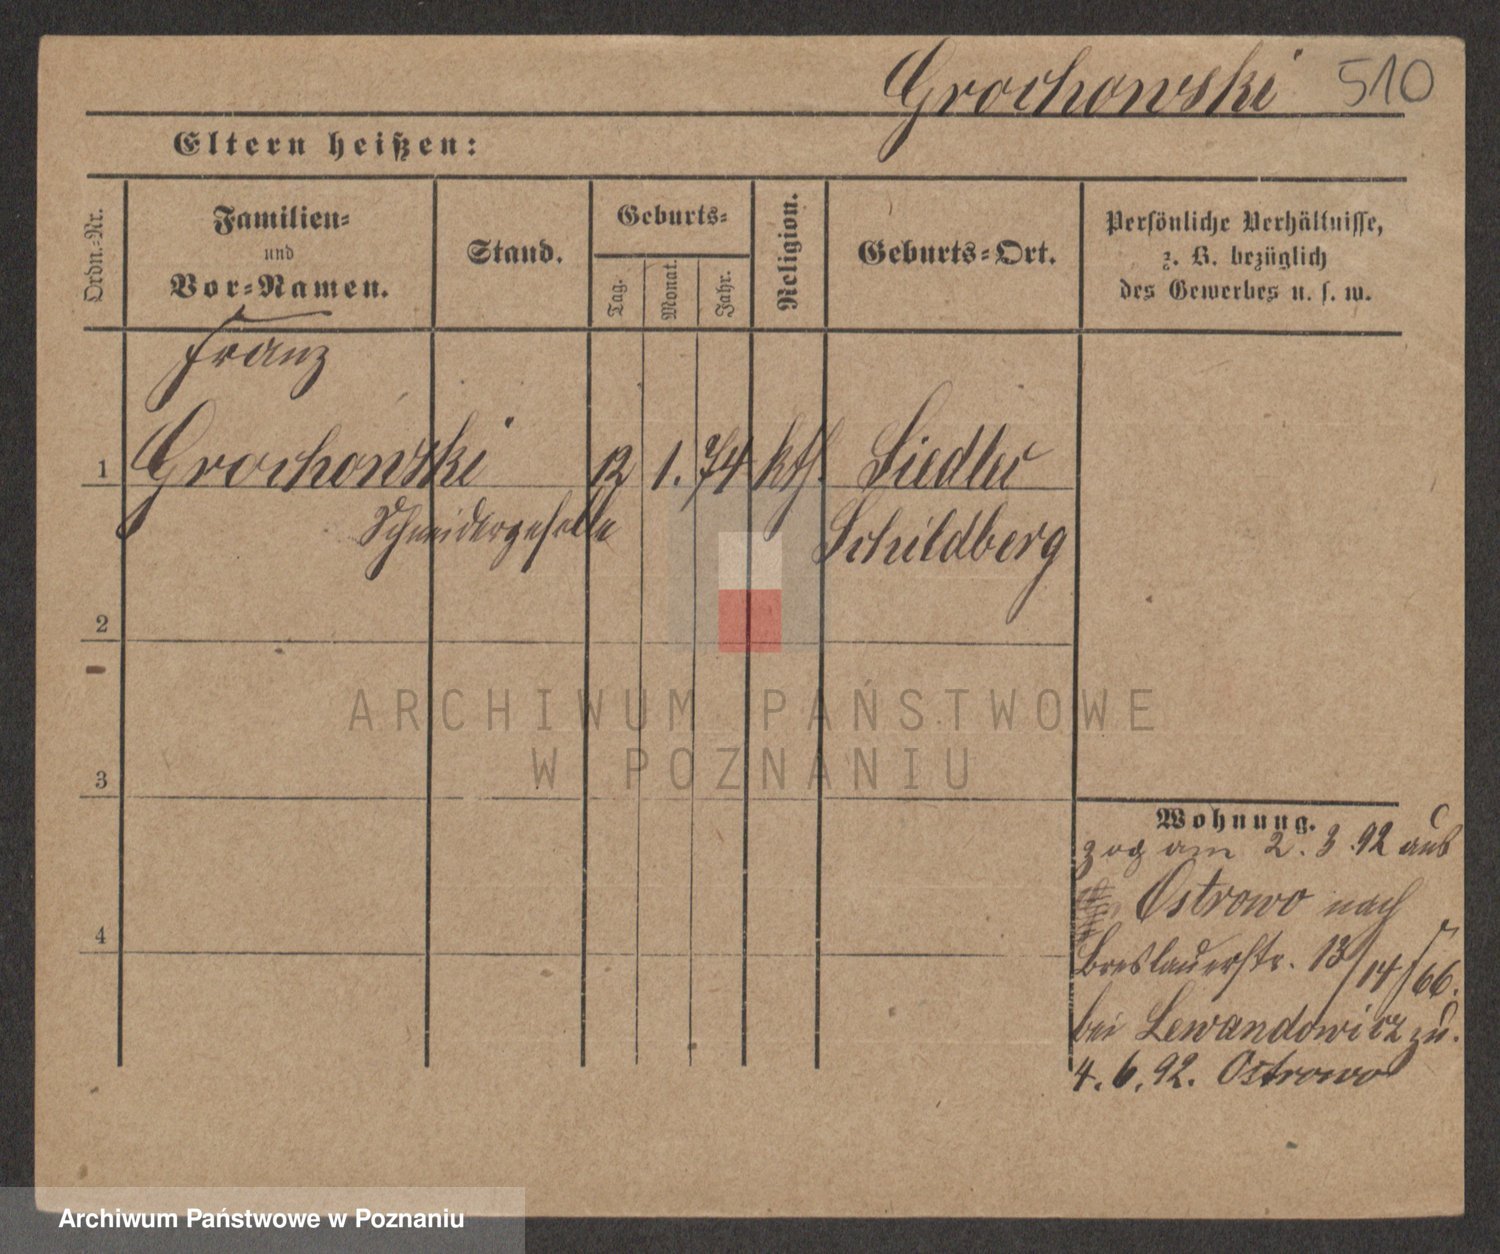 Grochowski 510
Eltern heißen:
Ordn.-Nr.
Familien-
und
Vor-Namen.
Stand.
Geburts-
Tag.
Monat.
Jahr.
Religion.
Geburts-Ort.
Persönliche Verhältnisse,
z. B. bezüglich
des Gewerbes u. s. w.
Franz
1 Grochowski 12 1. 74 kth. Siedler
Schneidergeselle Schildberg
2
3
4
Wohnung.
zog am 2. 3. 92 aus
Ostrowo nach
Breslauerstr. 13/14/66.
bei Lewandowicz zu.
4. 6. 92. Ostrowo
ARCHIWUM PAŃSTWOWE
W POZNANIU
Archiwum Państwowe w Poznaniu